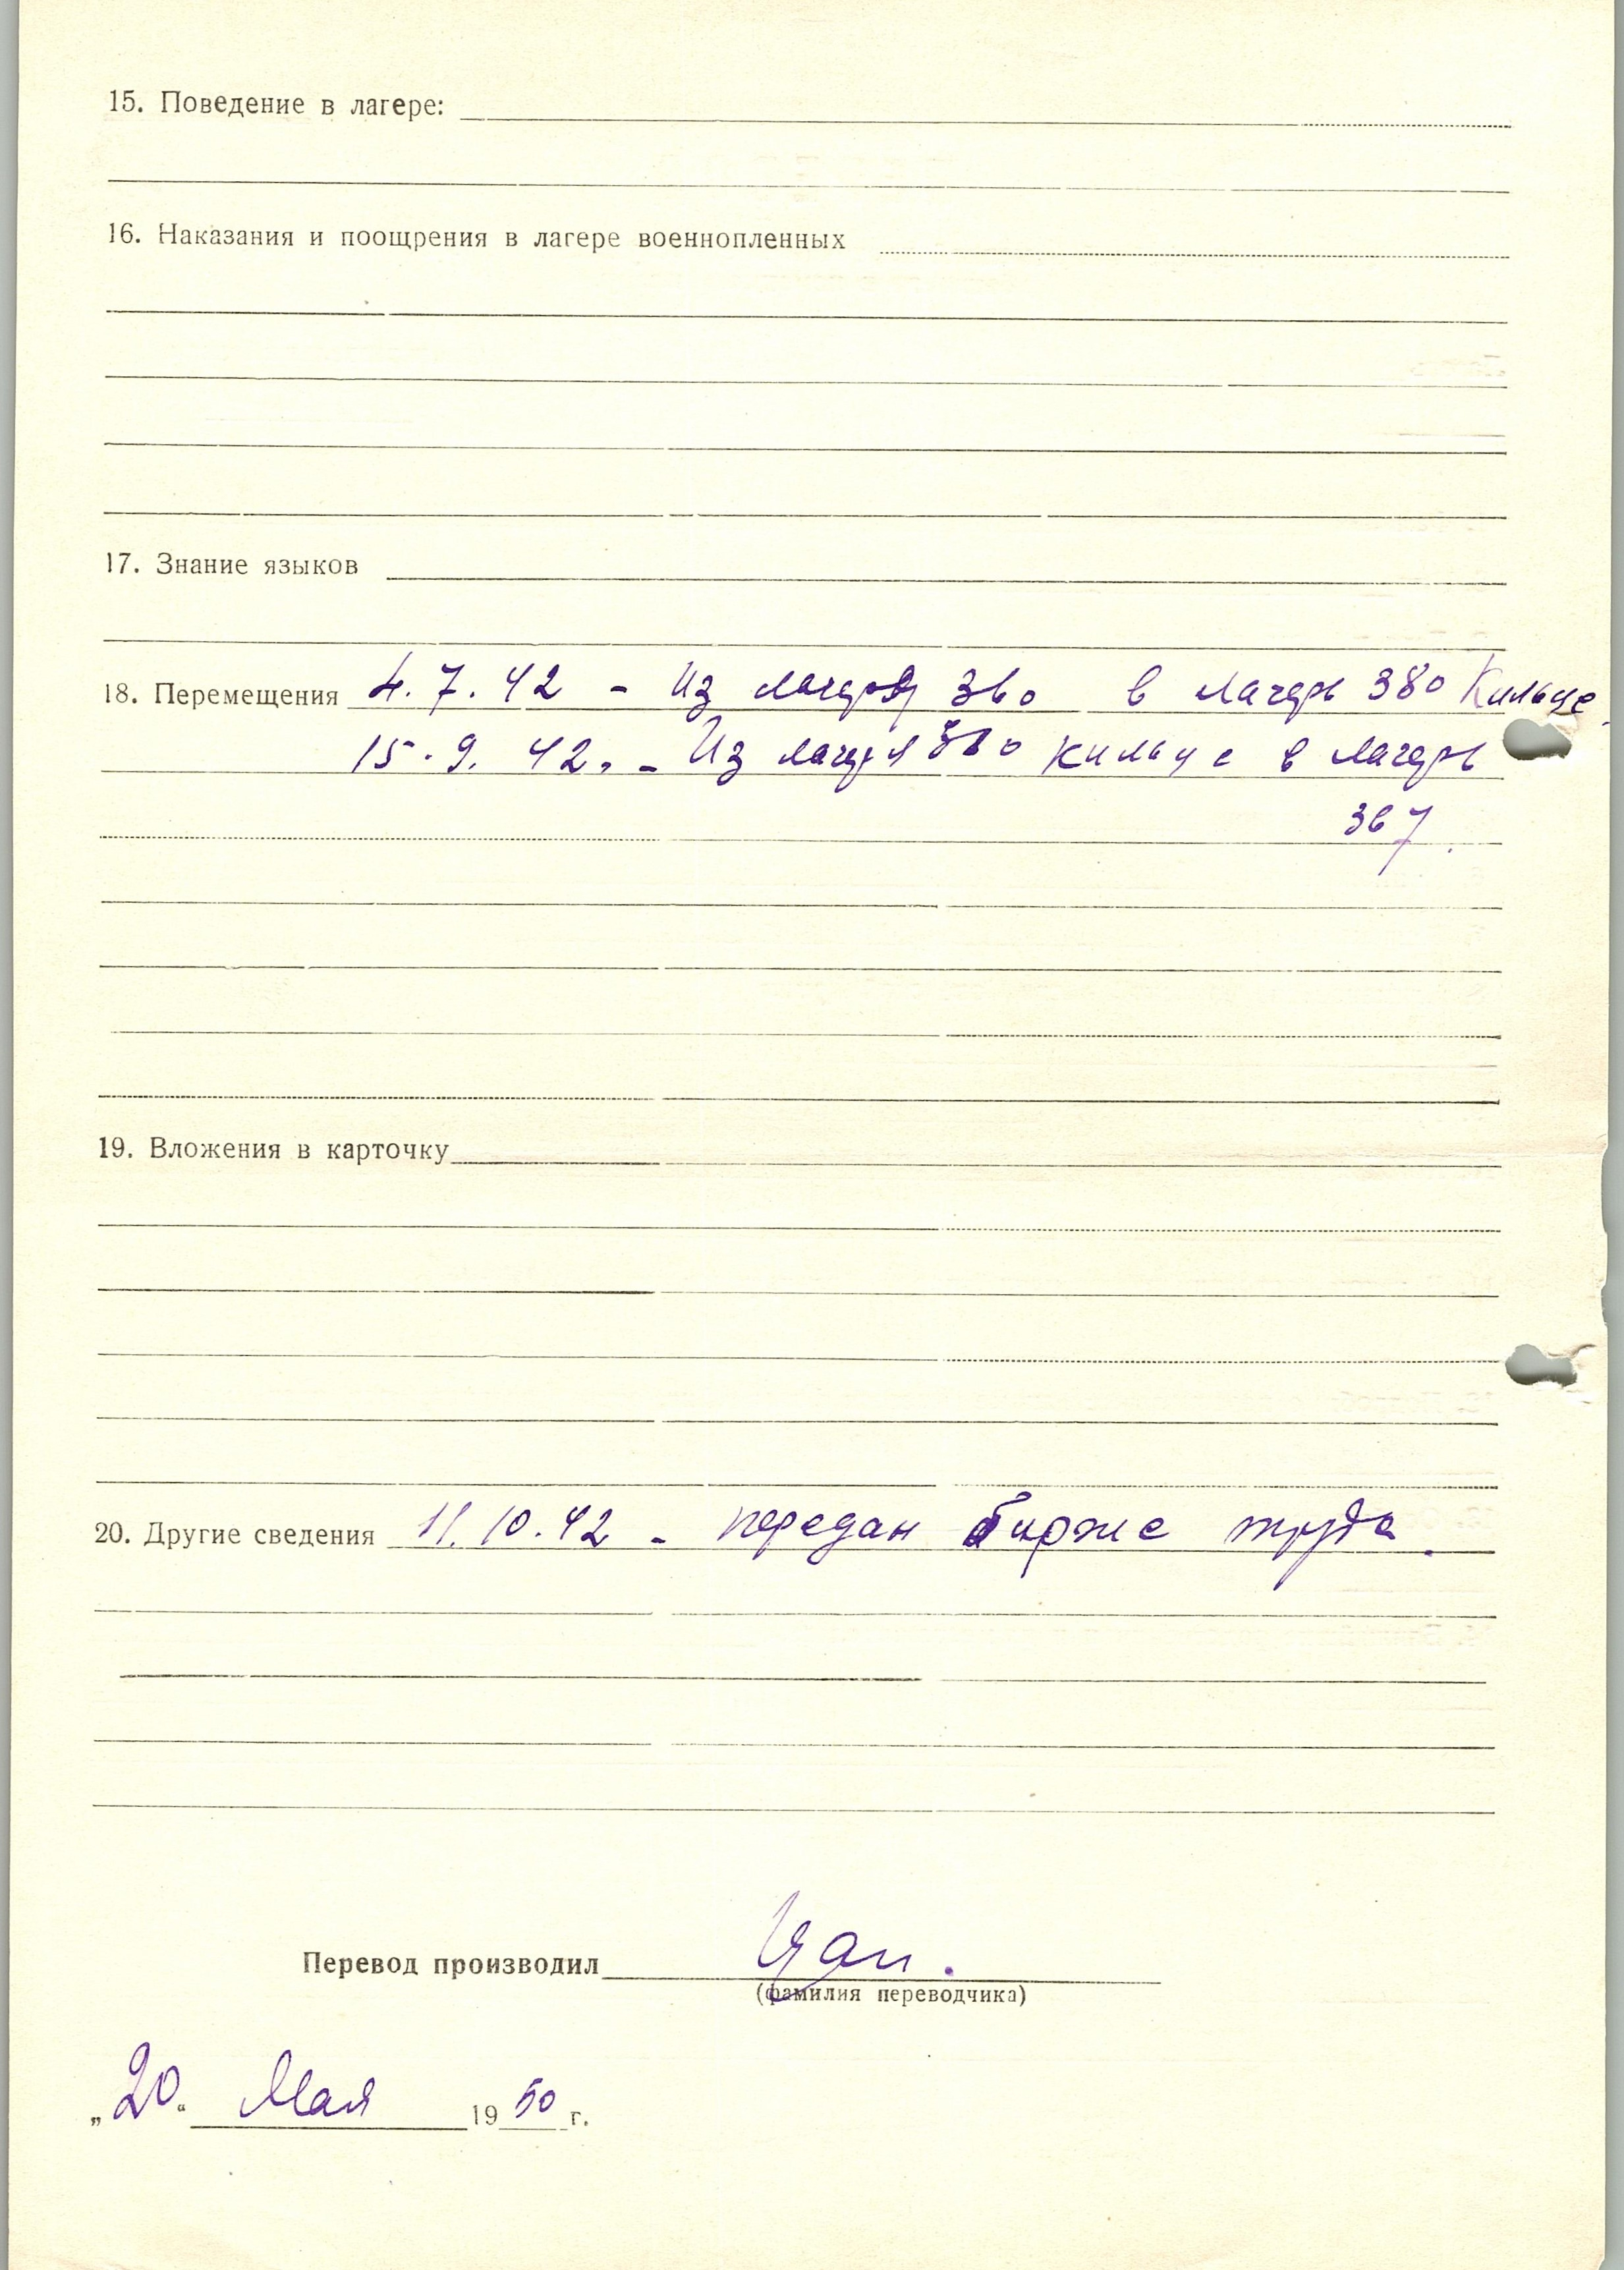 15. Поведение в лагере:
16. Наказания и поощрения в лагере военнопленных
17. Знание языков
18. Перемещения 4. 7. 42 - Из лагеря 360 в лагерь 380 Кильце.
15. 9. 42. - Из лагеря 380 Кильце в лагерь
367.
19. Вложения в карточку
20. Другие сведения 11. 10. 42 - передан бирже труда.
Перевод производил
(фамилия переводчика)
„20“ Мая 1950 г.